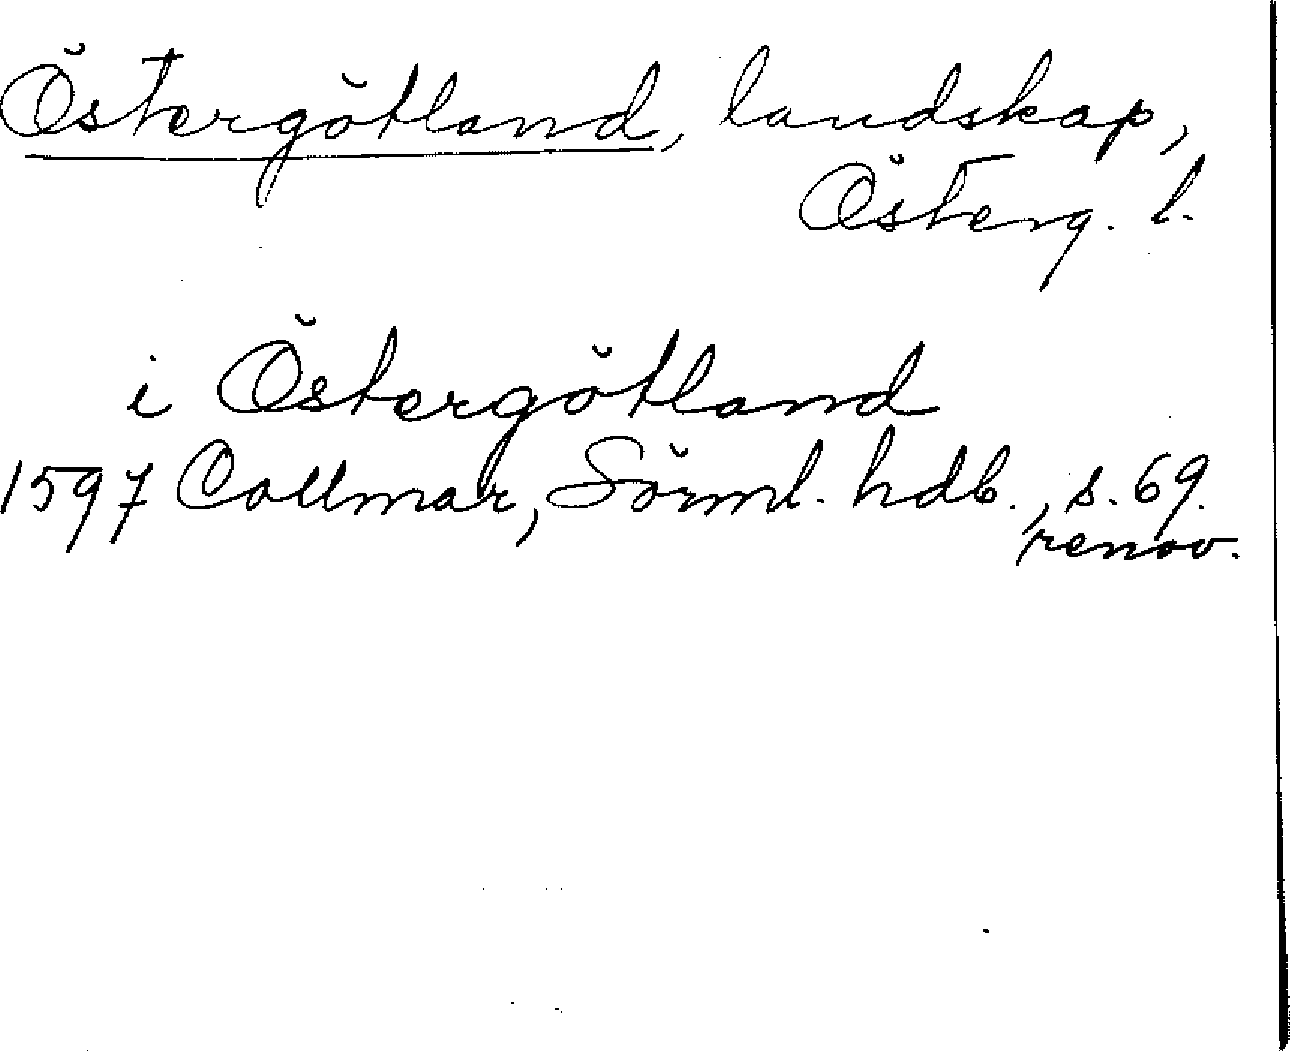 Östergötland, landskap,
Österg. l.
i Östergötland
1597 Collmar, Sörml. hdb., s. 69.
renov.